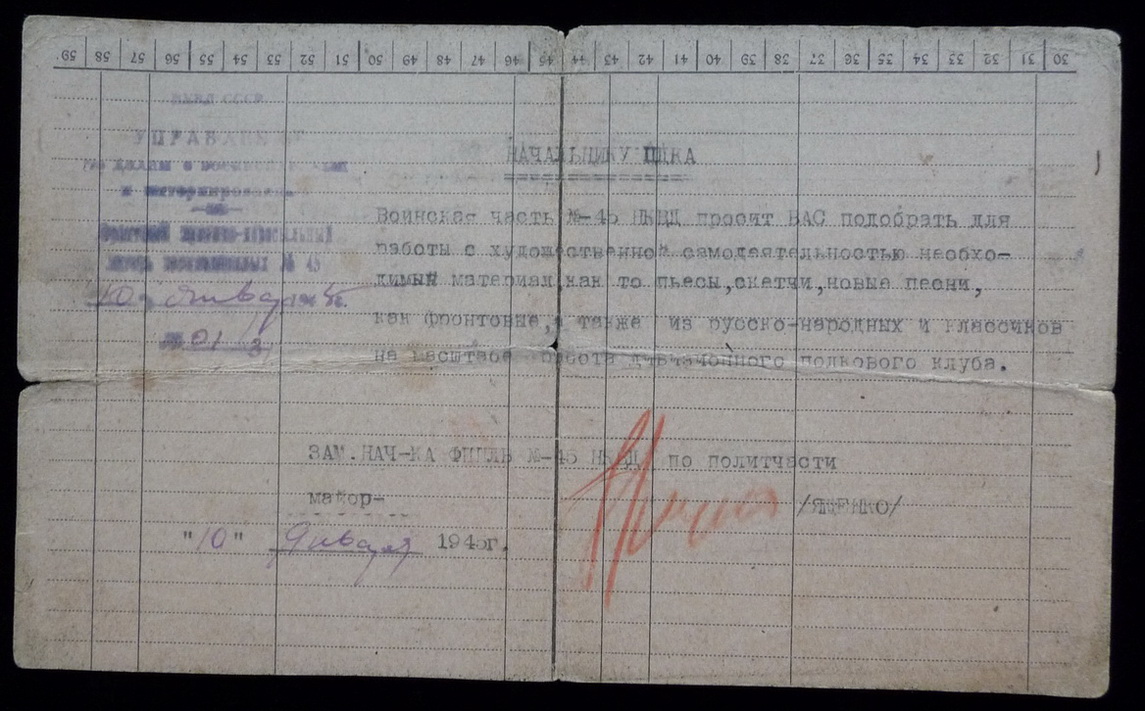 59 58 57 56 55 54 53 52 51 50 49 48 47 46 45 44 43 42 41 40 39 38 37 36 35 34 33 32 31 30
НКВД СССР
УПРАВЛЕНИЕ
по делам о военнопленных
и интернированных
№ 45
"10" января 1945г.
№ 01/3
НАЧАЛЬНИКУ ЦДКА
Воинская часть №-45 НКВД просит ВАС подобрать для
работы с художественной самодеятельностью необхо-
димый материал,как то пьесы,скетчи,новые песни,
как фронтовые,а также из русско-народных и классиков
на масштаб работы полкового клуба.
ЗАМ.НАЧ-КА №-45 НКВД по политчасти
майор-
/ЯЦЕНКО/
"10" Января 1945г.